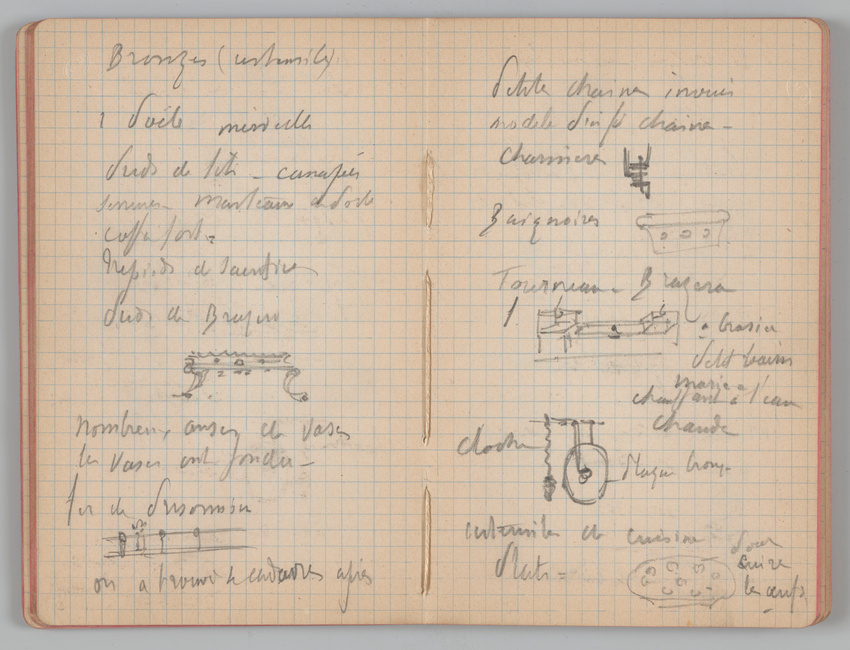 Bronzes (ustensiles)
1 Poêle
Pieds de lits - canapés
serrures - marteaux de porte
coffre fort -
trépieds de sacrifice
Pieds de Brazero
Nombreux anses de vases
les vases ont fondu -
fer de prisonnier
on a trouvé 4 cadavres après
Petites chaines
modèle chaines -
Charnières
Baignoires
Fourneau - Brazero
1
brasier
petit bain
marie
chauffant à l'eau
chaude
cloche
Plaque bronze
ustensiles de cuisine
Plats =
pour
cuire
les œufs